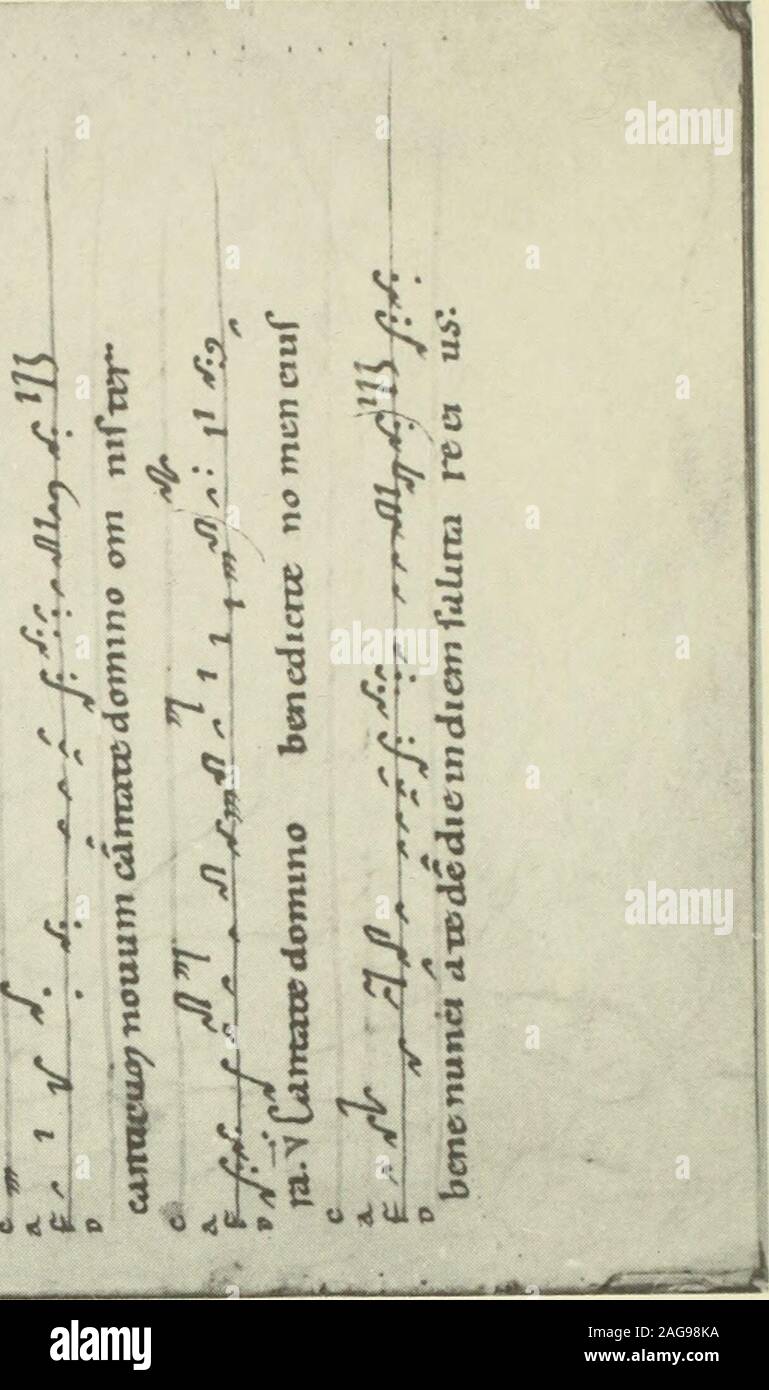 C
A
F
D
canticum nouum cantate domino om nis ter
C
A
F
D
ra. V Cantate domino benedicite no men eius
C
A
F
D
bene nunci ate de die in diem saluta re ei us:
alamy
2AG98KA
www.alamy.com